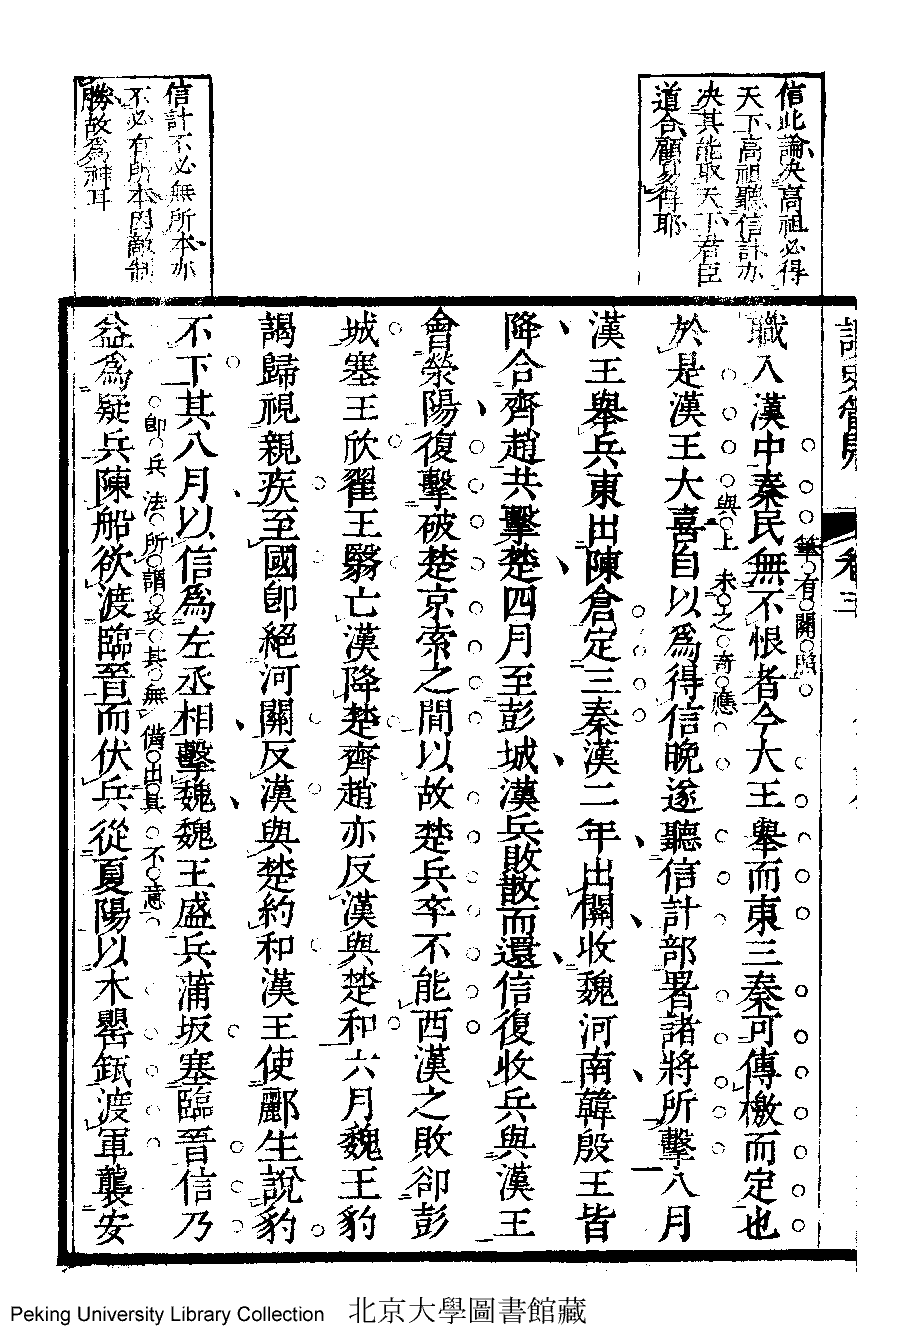 信此論决高祖必得
天下高祖聽信計亦
决其能取天下君臣
道合顧易得耶
信計不必無所本亦
不必有所本因敵制
勝故爲神耳
卷三
職入漢中秦民無不恨者今大王舉而東三秦可傳檄而定也
筆有開照
於是漢王大喜自以爲得信晚遂聽信計部署諸將所擊八月
與上未之奇應
漢王舉兵東出陳倉定三秦漢二年出關收魏河南韓殷王皆
降合齊趙共擊楚四月至彭城漢兵敗散而還信復收兵與漢王
會滎陽復擊破楚京索之間以故楚兵卒不能西漢之敗卻彭
城塞王欣翟王翳亡漢降楚齊趙亦反漢與楚和六月魏王豹
謁歸視親疾至國卽絕河關反漢與楚約和漢王使酈生說豹
不下其八月以信爲左丞相擊魏魏王盛兵蒲坂塞臨晉信乃
卽兵法所謂攻其無備出其不意
益爲疑兵陳船欲渡臨晉而伏兵從夏陽以木罌缻渡軍襲安
Peking University Library Collection 北京大學圖書館藏